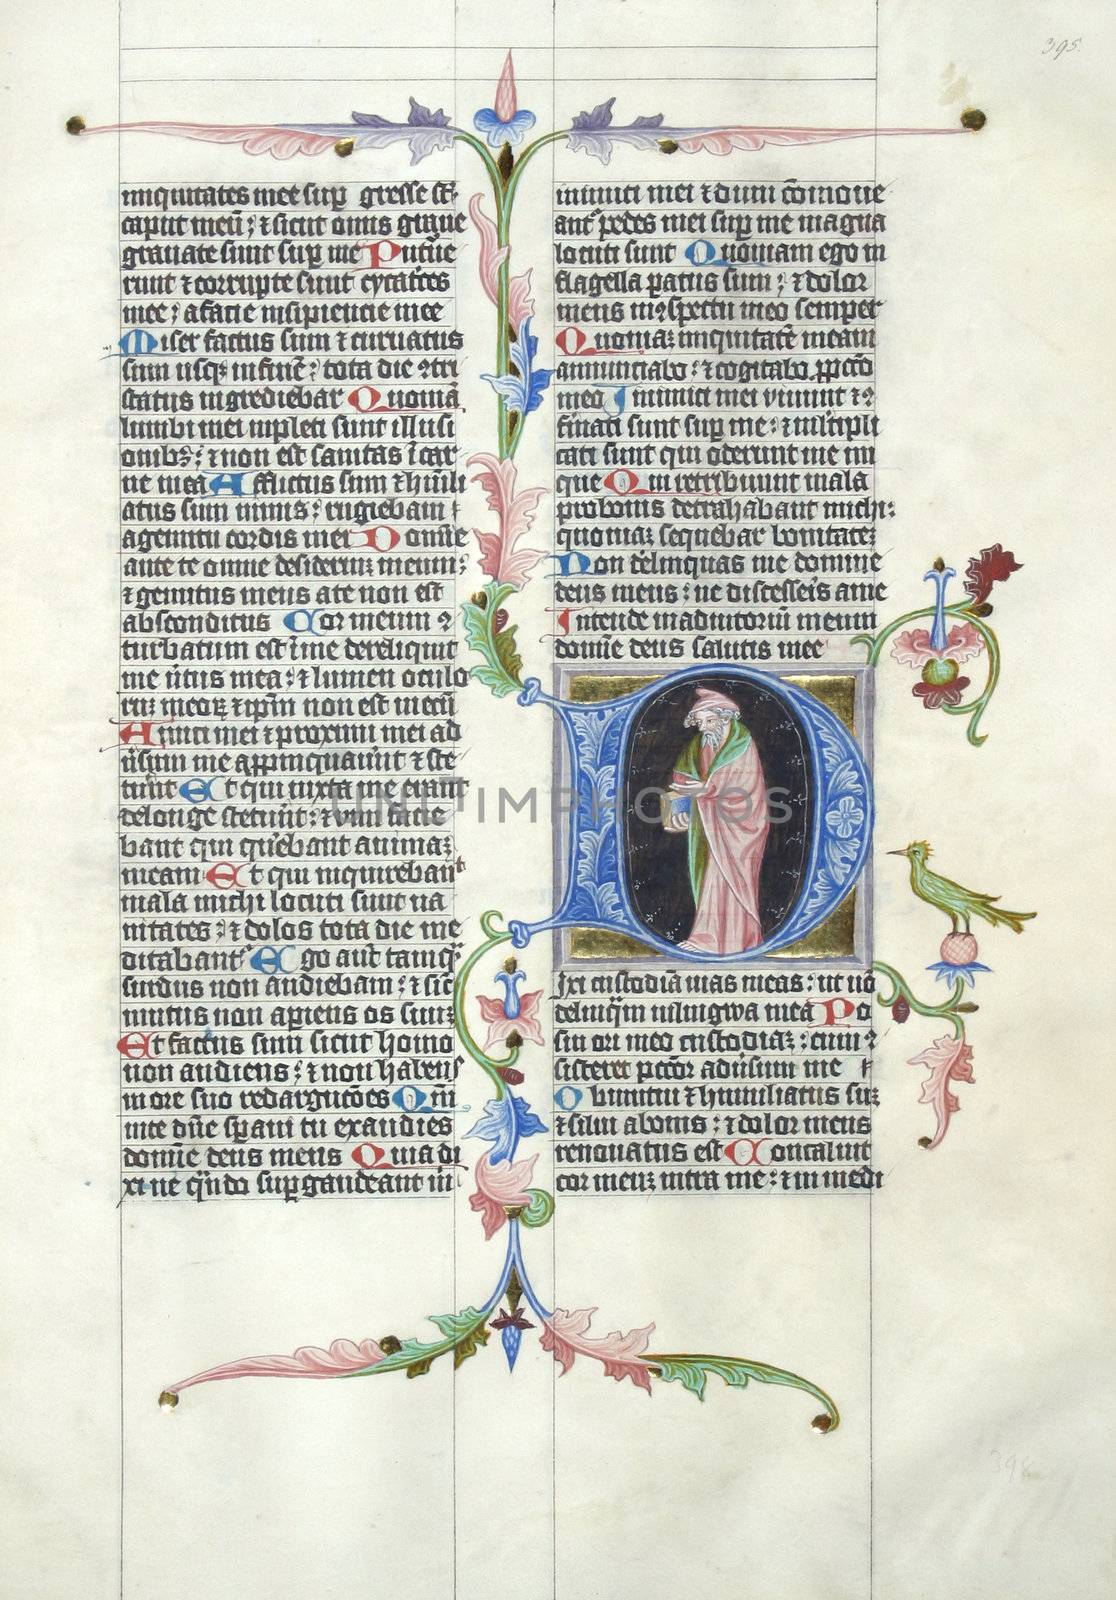 395.
iniquitates mee sup̄ gresse sūt
caput meū; ⁊ sicut onus graue
grauate sunt sup̄ me Putrue
runt ⁊ corrupte sunt cycatͥces
mee; a facie insipiencie mee
Miser factus sum ⁊ curuatus
sum usqꝫ in finē; tota die ꝯtri
status ingrediebar Quoniā
lumbi mei inpleti sunt illusi
onibꝫ; ⁊ non est sanitas ī car
ne mea Afflictus sum ⁊ humili
atus sum nimis; rugiebam a
gemitu cordis mei Domine
ante te omne desideriuꝫ meum;
⁊ gemitus meus a te non est
absconditus Cor meum ꝯ
turbatum est ī me dereliquit
me uirtus mea; ⁊ lumen oculo
ruꝫ meoꝝ ⁊ ip̄m non est mecū
Amici mei ⁊ proximi mei ad
uersum me app̄inquauerūt ⁊ ste
terunt Et qui iuxta me erant
de longe steterunt; ⁊ uim facie
bant qui querebant animaꝫ
meam Et qui inquirebant
mala michi locuti sunt ua
nitates; ⁊ dolos tota die me
ditabantͬ Ego aut̄ tamqͣ
surdus non audiebam; ⁊ sicͭ
mutus non aperiens os suuꝫ
Et factus sum sicut homo
non audiens; ⁊ non habens
in ore suo redargutōes Qm̄
in te dn̄e sperani tu exaudies
domine deus meus Quia di
xi ne qn̄do sup̄ gaudeant m̄
inimici mei ⁊ dum cōmoue
antͬ pedes mei sup̄ me magna
locuti sunt Quoniam ego in
flagella paratus sum; ⁊ dolor
meus in ꝯspectu meo semper
Quoniaꝫ iniquitatē meam
annunciabo; ⁊ cogitabo p̱ pctō
meo Inimici mei viuunt ⁊ ꝯ
firmati sunt sup̄ me; ⁊ mltipli
cati sunt qui oderunt me ini
que Qui retribuunt mala
pro bonis detrahabant michi;
quoniaꝫ sequebar bonitateꝫ
Non derelinquas me domine
deus meus; ne discesseris a me
Intende in adiutoriū meum
domine deus salutis mee
Dixi custodiā uias meas; ut nō
delinquam in lingwa mea Po
sui ori meo custodiaꝫ; cum ꝯ
sisteret pctōr aduersum me
Obmutui ⁊ humiliatus suꝫ
⁊ silui a bonis; ⁊ dolor meus
renouatus est Concaluit
cor meuꝫ intra me; ⁊ in medi
398